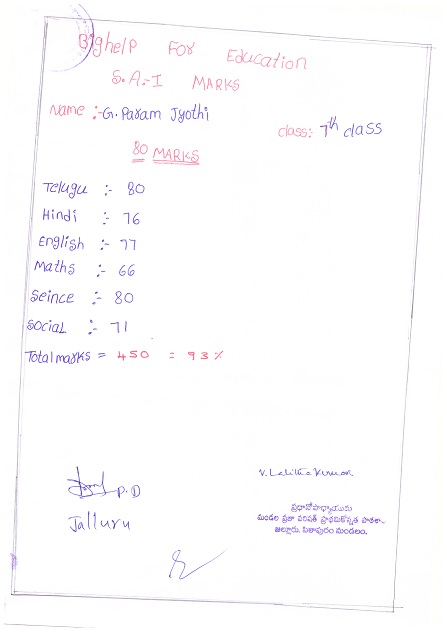 Bighelp For Education
S.A.-I MARKS
Name :- G. Param Jyothi
class: 7th class
80 MARKS
Telugu :- 80
Hindi :- 76
English :- 77
Maths :- 66
Seince :- 80
Social :- 71
Total marks = 450 = 93%
P.D
Jalluru
V. Lalitha Kumar
ప్రధానోపాధ్యాయుడు
మండల ప్రజా పరిషత్ ప్రాథమికోన్నత పాఠశాల
జల్లూరు, పిఠాపురం మండలం.